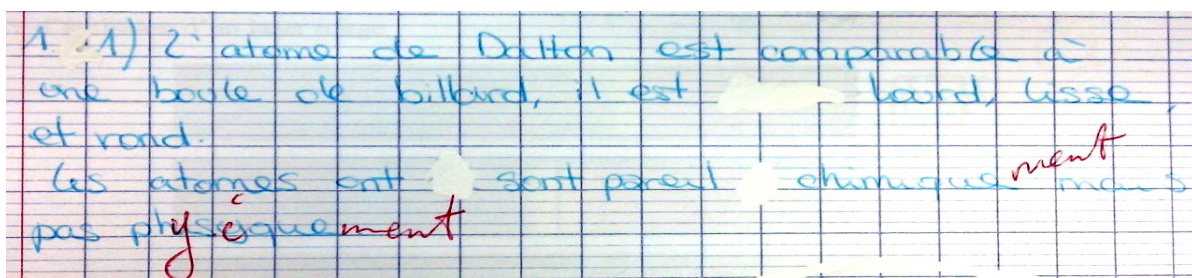 1. 1) L'atome de Dalton est comparable à
une boule de billard, il est lourd, lisse,
et rond.
Les atomes ont sont pareil chimiquement mais
pas physiquement